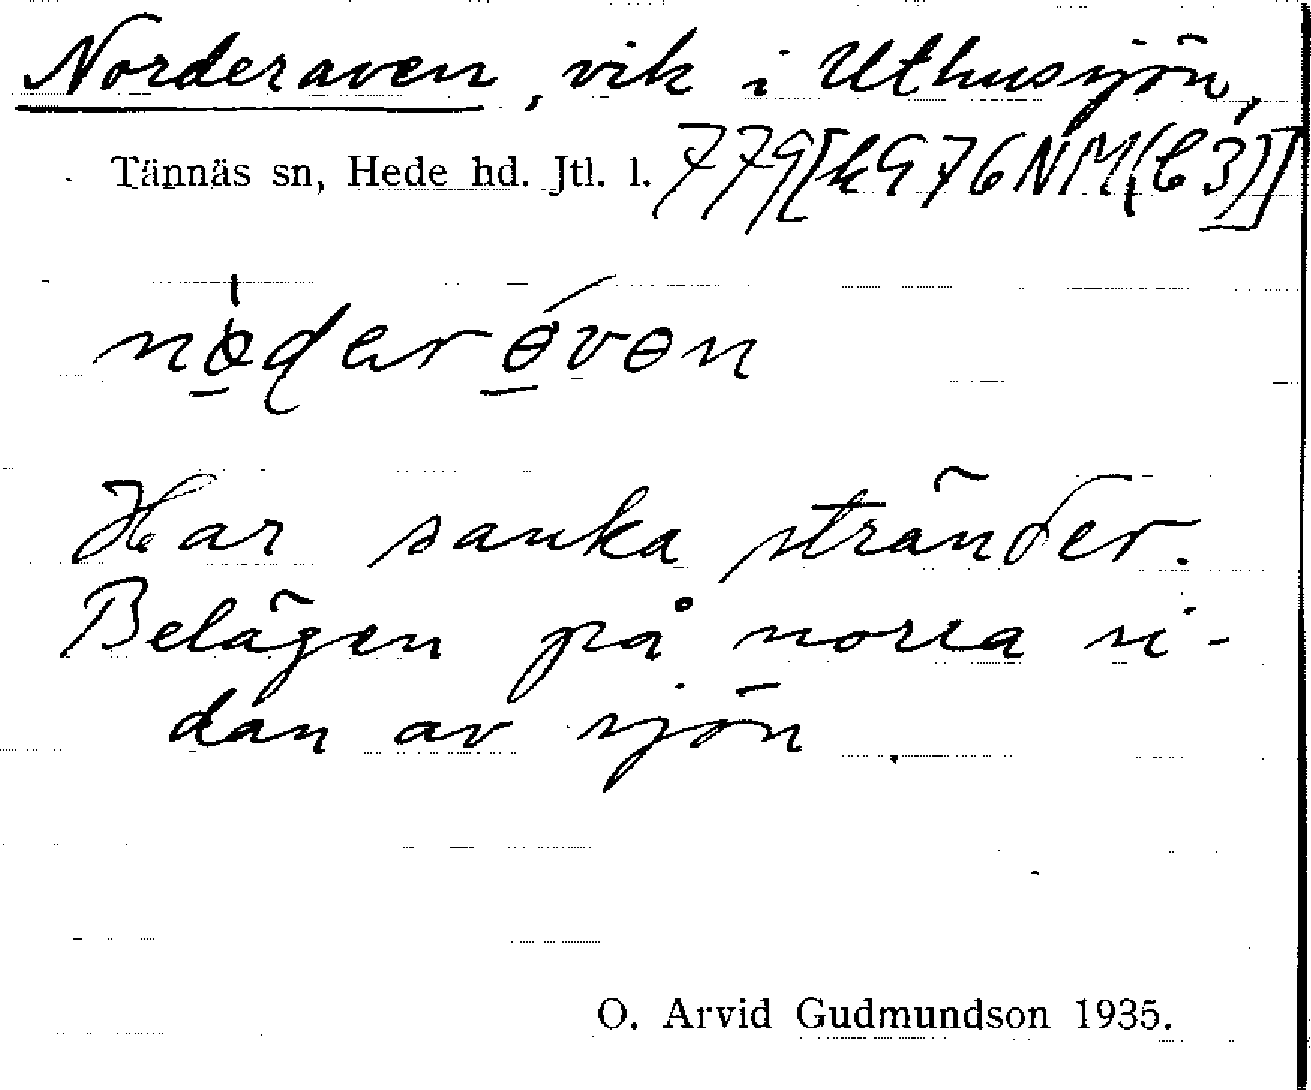 Norderaven, vik i Uthussjön,
Tännäs sn, Hede hd. Jtl. l. 779[k976NM(C3)]
Har sanka stränder.
Belägen på norra si-
dan av sjön
O. Arvid Gudmundson 1935.